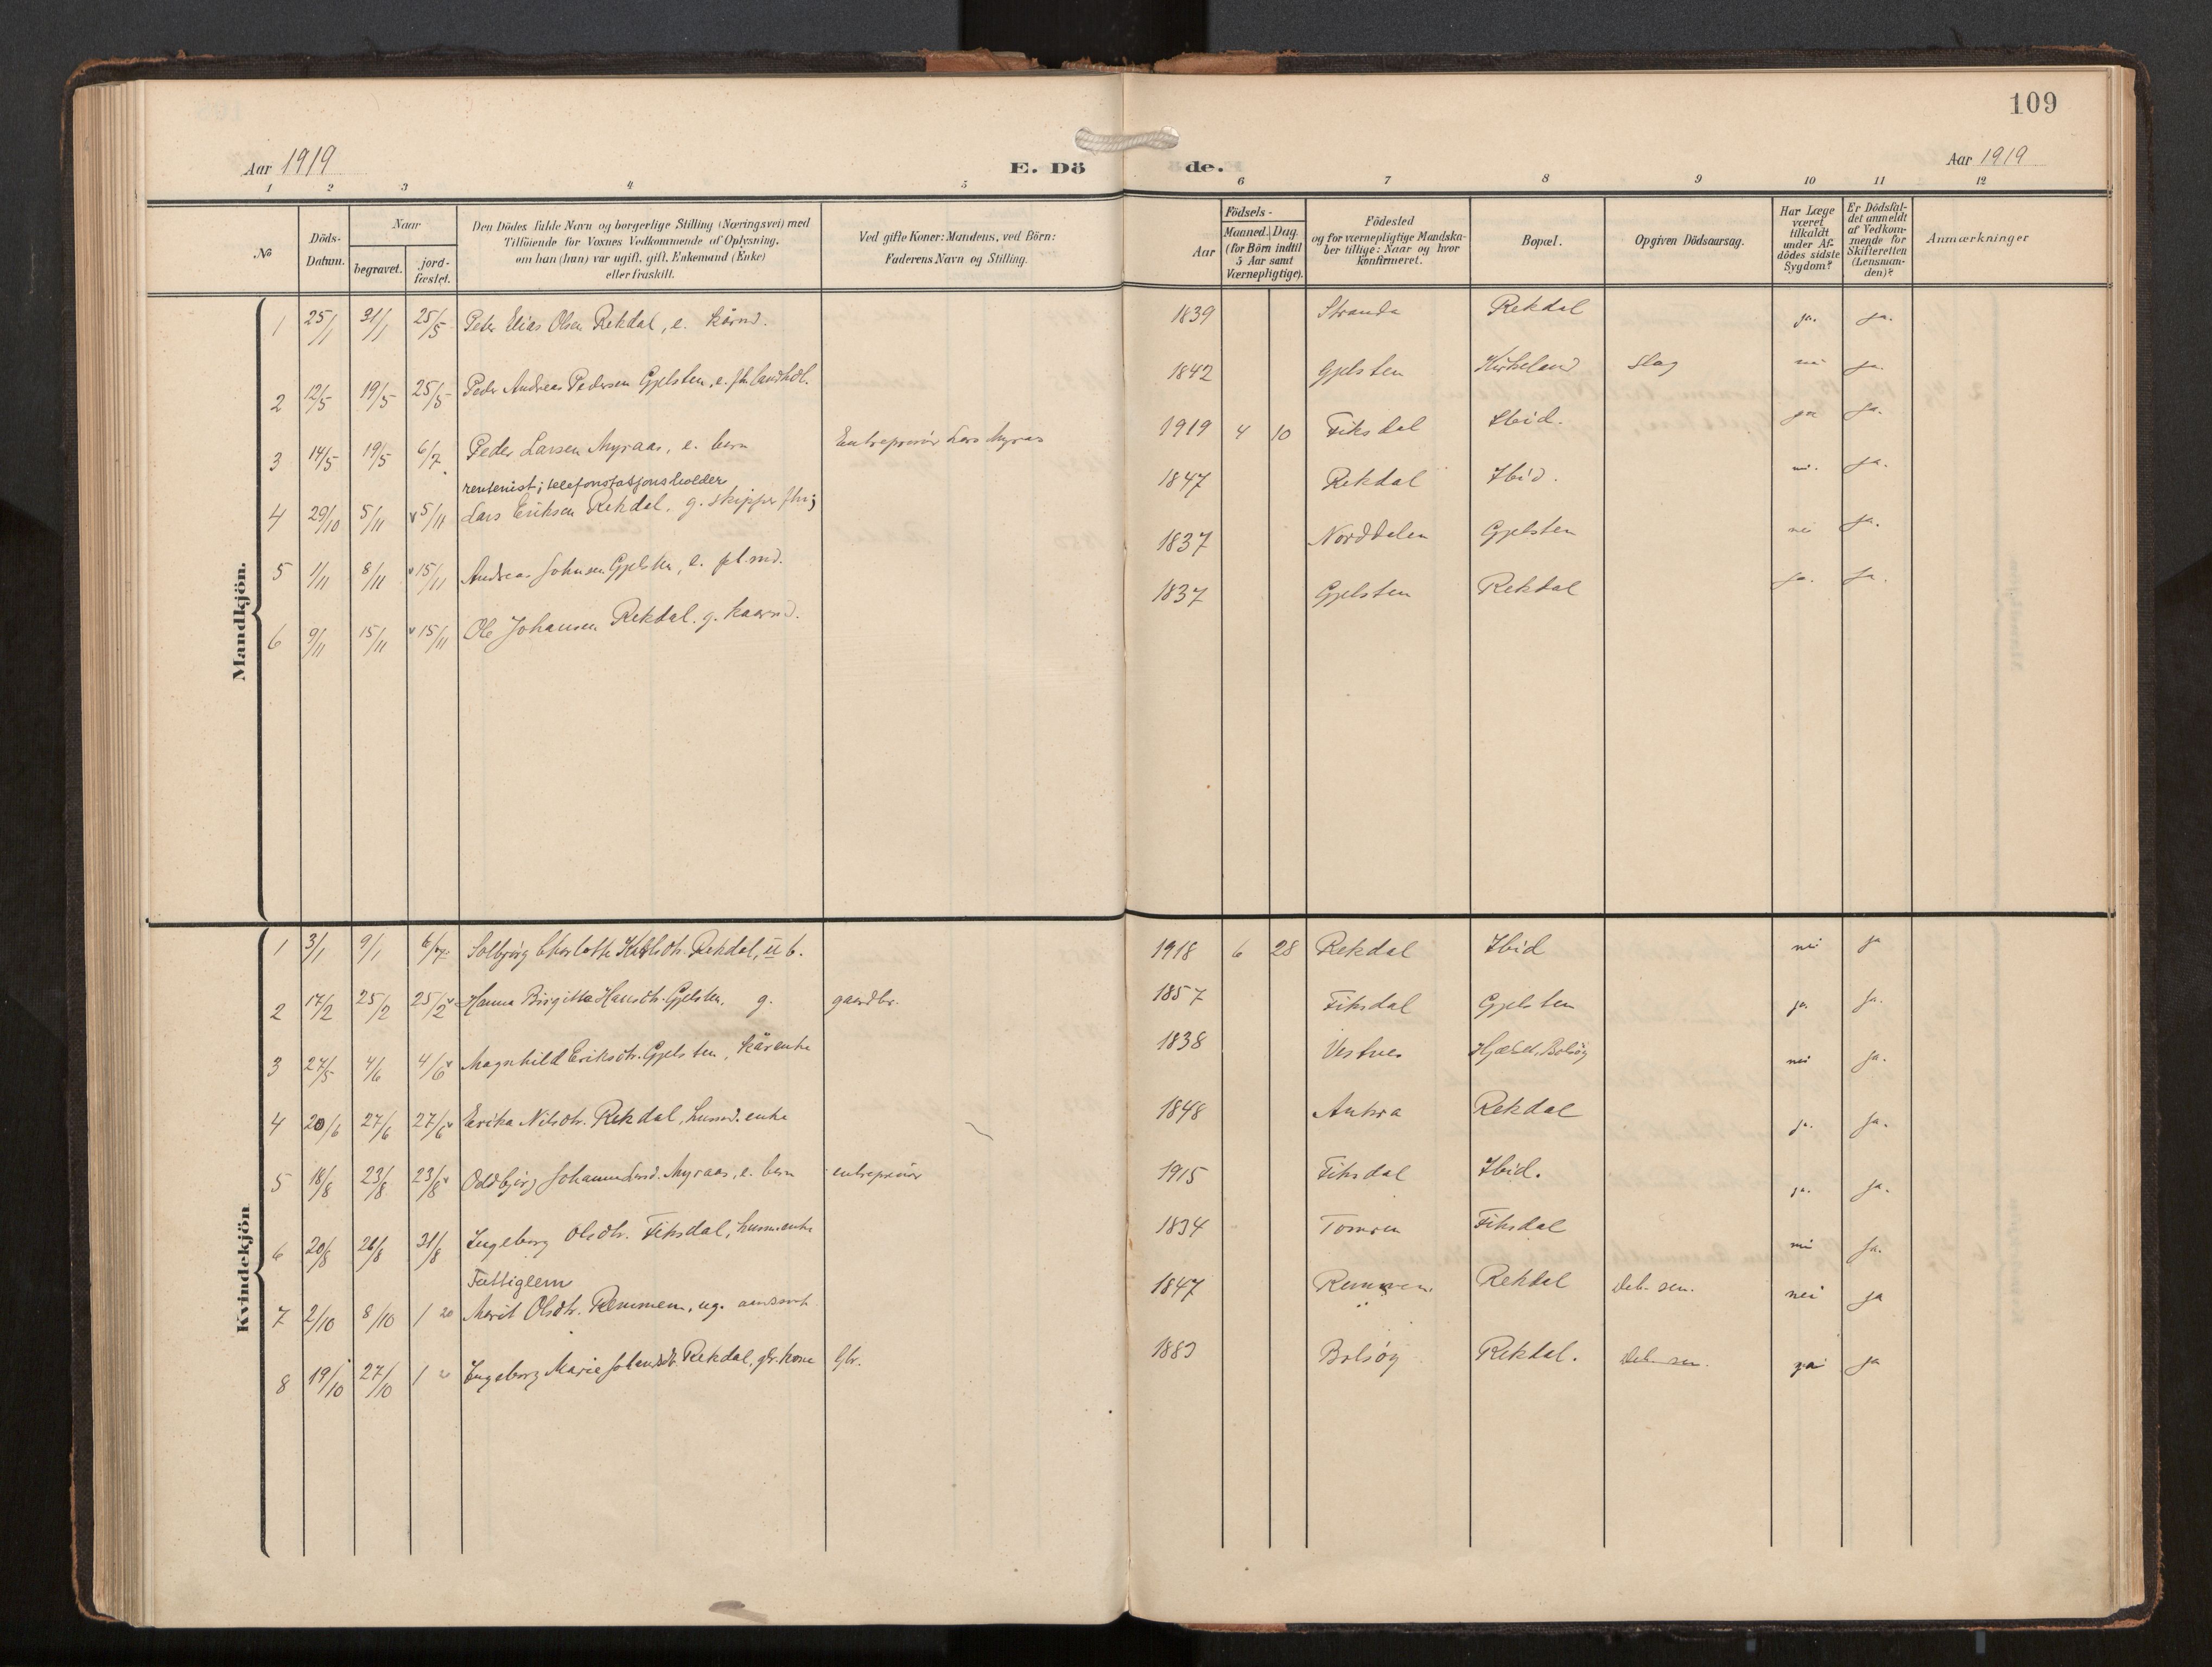 109
Aar 1919
E. Dö
de.
Aar 1919
1 2 3 4 5 6 7 8 9 10 11 12
№
Döds-
Datum.
Naar
begravet.
jord-
fæstet.
Den Dödes fulde Navn og borgerlige Stilling (Næringsvei) med
Tilföiende for Voxnes Vedkommende af Oplysning,
om han (hun) var ugift, gift, Enkemand (Enke)
eller fraskilt.
Ved gifte Koner: Mandens, ved Börn:
Faderens Navn og Stilling.
Födsels-
Aar
Maaned. Dag.
(for Börn indtil
5 Aar samt
Værnepligtige).
Födested
og for værnepligtige Mandska-
ber tillige: Naar og hvor
konfirmeret.
Bopæl.
Opgiven Dödsaarsag.
Har Læge
været
tilkaldt
under Af-
dödes sidste
Sygdom?
Er Dödsfal-
det anmeldt
af Vedkom-
mende for
Skifteretten
(Lensman-
den)?
Anmærkninger
Mandkjön.
1 25/1 31/1 25/5 Peter Elias Olsen Rekdal, e. kårmd. 1839 Stranda Rekdal ja. ja.
2 12/5 19/5 25/5 Peder Andreas Pedersen Gjelsten, e. fhv. landhdl. 1842 Gjelsten Kirkeland Slag nei ja.
3 14/5 19/5 6/7 Peder Larsen Myraas, e. barn Entreprenör Lars Myraas 1919 4 10 Fiksdal Ibid. ja ja.
rentenist; telefonstasjonsholder
4 29/10 5/11 v 5/11 Lars Eriksen Rekdal, g. skipper fhv; 1847 Rekdal Ibid. nei. ja.
5 1/11 8/11 v 15/11 Andreas Johnsen Gjelsten, e. pl.md. 1837 Norddalen Gjelsten nei ja.
6 9/11 15/11 v 15/11 Ole Johansen Rekdal. g. kaarmd. 1837 Gjelsten Rekdal ja. ja.
Kvindekjön
1 3/1 9/1 6/7 Solbjörg Charlotte Rekdal, u b. 1918 6 28 Rekdal Ibid nei ja
2 17/2 25/2 25/2 v Hanna Birgitta Hansdtr. Gjelsten, g. gaardbr. 1857 Fiksdal Gjelsten ja. ja.
3 27/5 4/6 4/6 v Magnhild Eriksdtr. Gjelsten, kårenke 1838 Vestnes Hjelset, Bolsöy nei ja.
4 20/6 27/6 27/6 v Erika Nilsdtr. Rekdal, husmd. enke 1848 Aukra Rekdal ja. ja.
5 18/8 23/8 23/8 v Oddbjörg Johanna Larsd. Myraas, e. barn entreprenör 1915 Fiksdal Ibid. ja. ja.
6 20/8 26/8 31/8 Ingeborg Olsdtr. Fiksdal, husm.enke 1834 Tomren Fiksdal nei ja.
Fattiglem
7 2/10 8/10 1 20 Marit Olsdtr. Remmem, ug. aandssvak 1847 Remmem Rekdal Deb. sen. nei ja
8 19/10 27/10 1 Ingeborg Marie Rekdal, gbr. kone Gbr. 1883 Bolsöy Rekdal. Deb. sen. ja ja